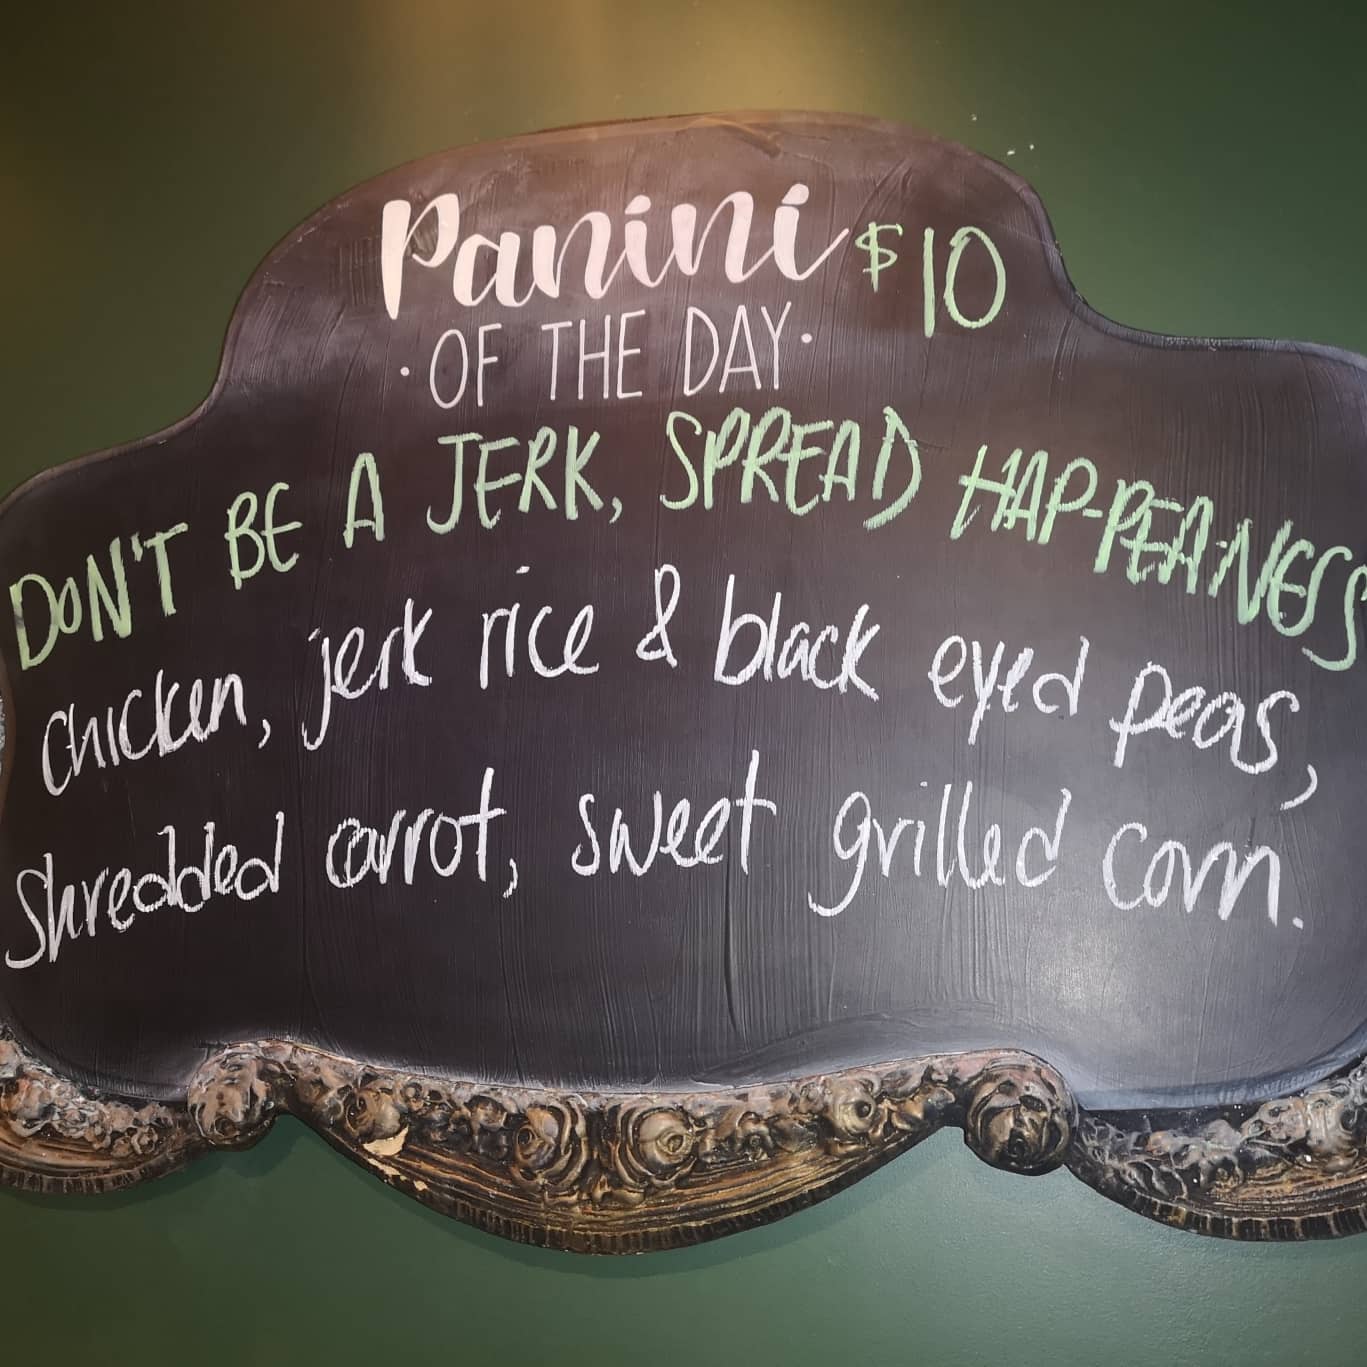 Panini $10
· OF THE DAY ·
DON'T BE A JERK, SPREAD HAP-PEA-NESS
chicken, jerk rice & black eyed peas,
shredded carrot, sweet grilled corn.